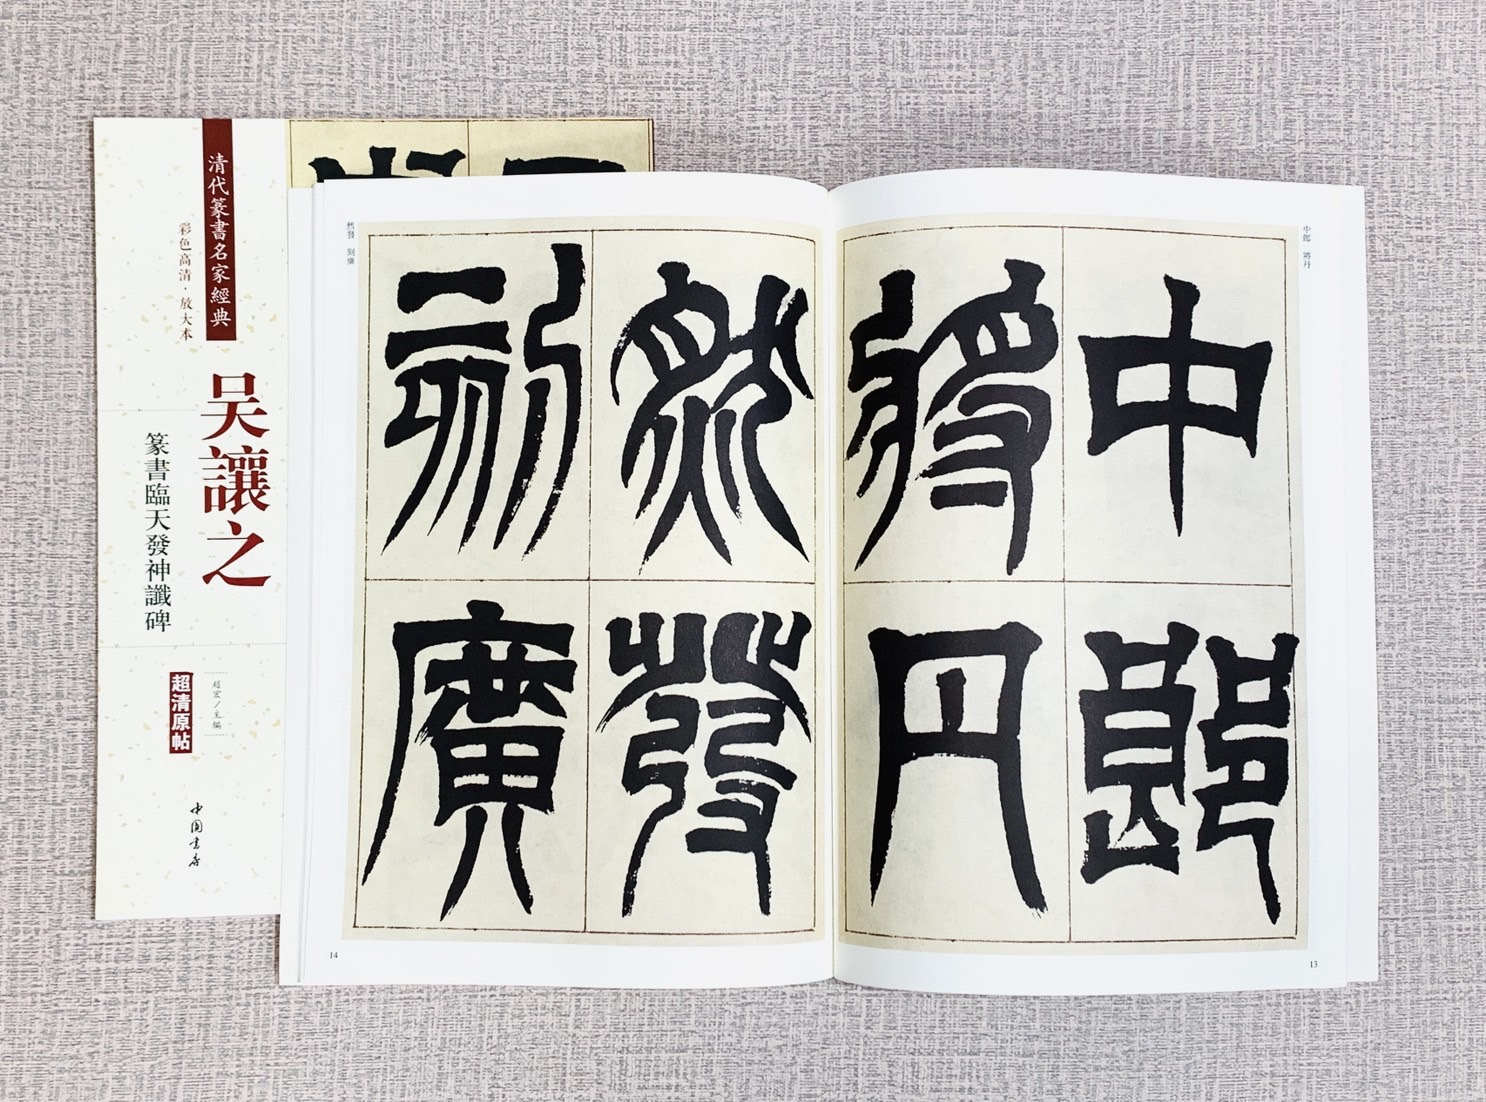 清代篆書名家經典
彩色高清·放大本
吴讓之
篆書臨天發神讖碑
趙宏／主編
超清原帖
中国書店
中郎 將丹
中郎
將丹
13
然發 刻廣
然發
刻廣
14